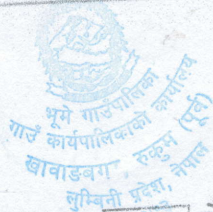 भूमे गाउँपालिका
गाउँ कार्यपालिकाको कार्यालय
खावाङबगर रुकुम (पूर्व)
लुम्बिनी प्रदेश, नेपाल